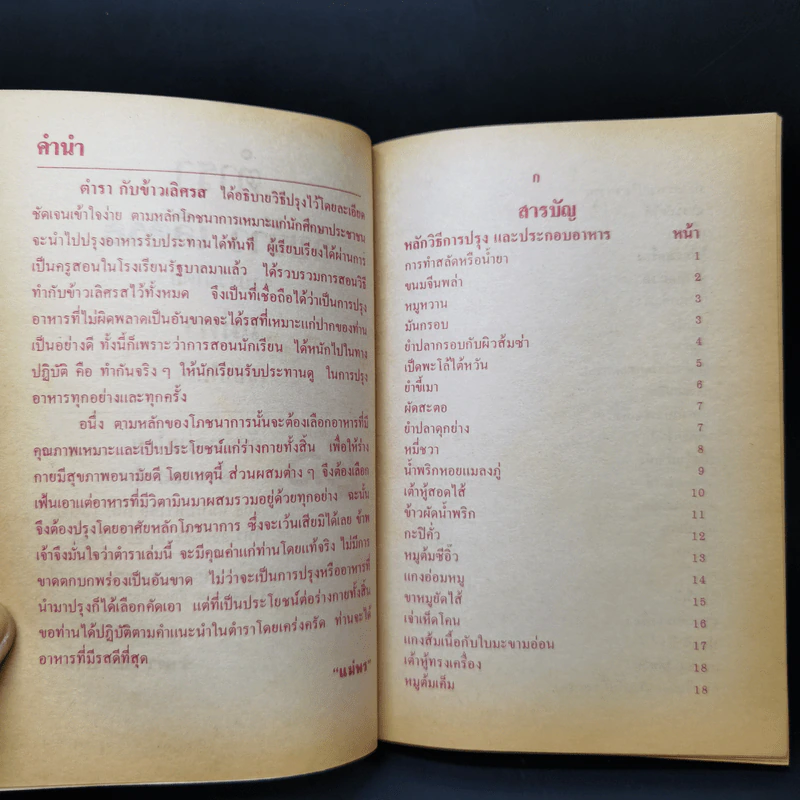 คำนำ
ตำรา กับข้าวเลิศรส ได้อธิบายวิธีปรุงไว้โดยละเอียด
ชัดเจนเข้าใจง่าย ตามหลักโภชนาการเหมาะแก่นักศึกษาประชาชน
จะนำไปปรุงอาหารรับประทานได้ทันที ผู้เรียบเรียงได้ผ่านการ
เป็นครูสอนในโรงเรียนรัฐบาลมาแล้ว ได้รวบรวมการสอนวิธี
ทำกับข้าวเลิศรสไว้ทั้งหมด จึงเป็นที่เชื่อถือได้ว่าเป็นการปรุง
อาหารที่ไม่ผิดพลาดเป็นอันขาดจะได้รสที่เหมาะแก่ปากของท่าน
เป็นอย่างดี ทั้งนี้ก็เพราะว่าการสอนนักเรียน ได้หนักไปในทาง
ปฏิบัติ คือ ทำกันจริง ๆ ให้นักเรียนรับประทานดู ในการปรุง
อาหารทุกอย่างและทุกครั้ง
อนึ่ง ตามหลักของโภชนาการนั้นจะต้องเลือกอาหารที่มี
คุณภาพเหมาะและเป็นประโยชน์แก่ร่างกายทั้งสิ้น เพื่อให้ร่าง
กายมีสุขภาพอนามัยดี โดยเหตุนี้ ส่วนผสมต่าง ๆ จึงต้องเลือก
เฟ้นเอาแต่อาหารที่มีวิตามินมาผสมรวมอยู่ด้วยทุกอย่าง ฉะนั้น
จึงต้องปรุงโดยอาศัยหลักโภชนาการ ซึ่งจะเว้นเสียมิได้เลย ข้าพ
เจ้าจึงมั่นใจว่าตำราเล่มนี้ จะมีคุณค่าแก่ท่านโดยแท้จริง ไม่มีการ
ขาดตกบกพร่องเป็นอันขาด ไม่ว่าจะเป็นการปรุงหรืออาหารที่
นำมาปรุงก็ได้เลือกคัดเอา แต่ที่เป็นประโยชน์ต่อร่างกายทั้งสิ้น
ขอท่านได้ปฏิบัติตามคำแนะนำในตำราโดยเคร่งครัด ท่านจะได้
อาหารที่มีรสดีที่สุด
"แม่พร"
ก
สารบัญ
หลักวิธีการปรุง และประกอบอาหาร หน้า
การทำสลัดหรือน้ำยา 1
ขนมจีนพล่า 2
หมูหวาน 3
มันกรอบ 3
ยำปลากรอบกับผิวส้มซ่า 4
เป็ดพะโล้ไต้หวัน 5
ยำขี้เมา 6
ผัดสะตอ 7
ยำปลาดุกย่าง 7
หมี่ชวา 8
น้ำพริกหอยแมลงภู่ 9
เต้าหู้สอดไส้ 10
ข้าวผัดน้ำพริก 11
กะปิคั่ว 12
หมูต้มซีอิ๊ว 13
แกงอ่อมหมู 14
ขาหมูยัดไส้ 15
เจ่าเห็ดโคน 16
แกงส้มเนื้อกับใบมะขามอ่อน 17
เต้าหู้ทรงเครื่อง 18
หมูต้มเค็ม 18